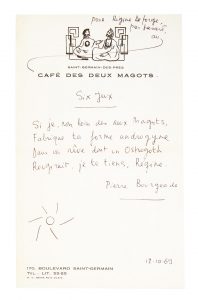 pour Régine Deforge,
SAINT-GERMAIN-DES-PRÉS
CAFÉ DES DEUX MAGOTS
Six Jeux
Si je, non loin des deux Magots,
Fabrique ta forme androgyne
Dans un rêve dont un Ostrogoth
Rougirait, je te tiens, Régine.
Pierre Bourgeade
170, BOULEVARD SAINT-GERMAIN
TÉL. LIT. 55-25
12-10-69